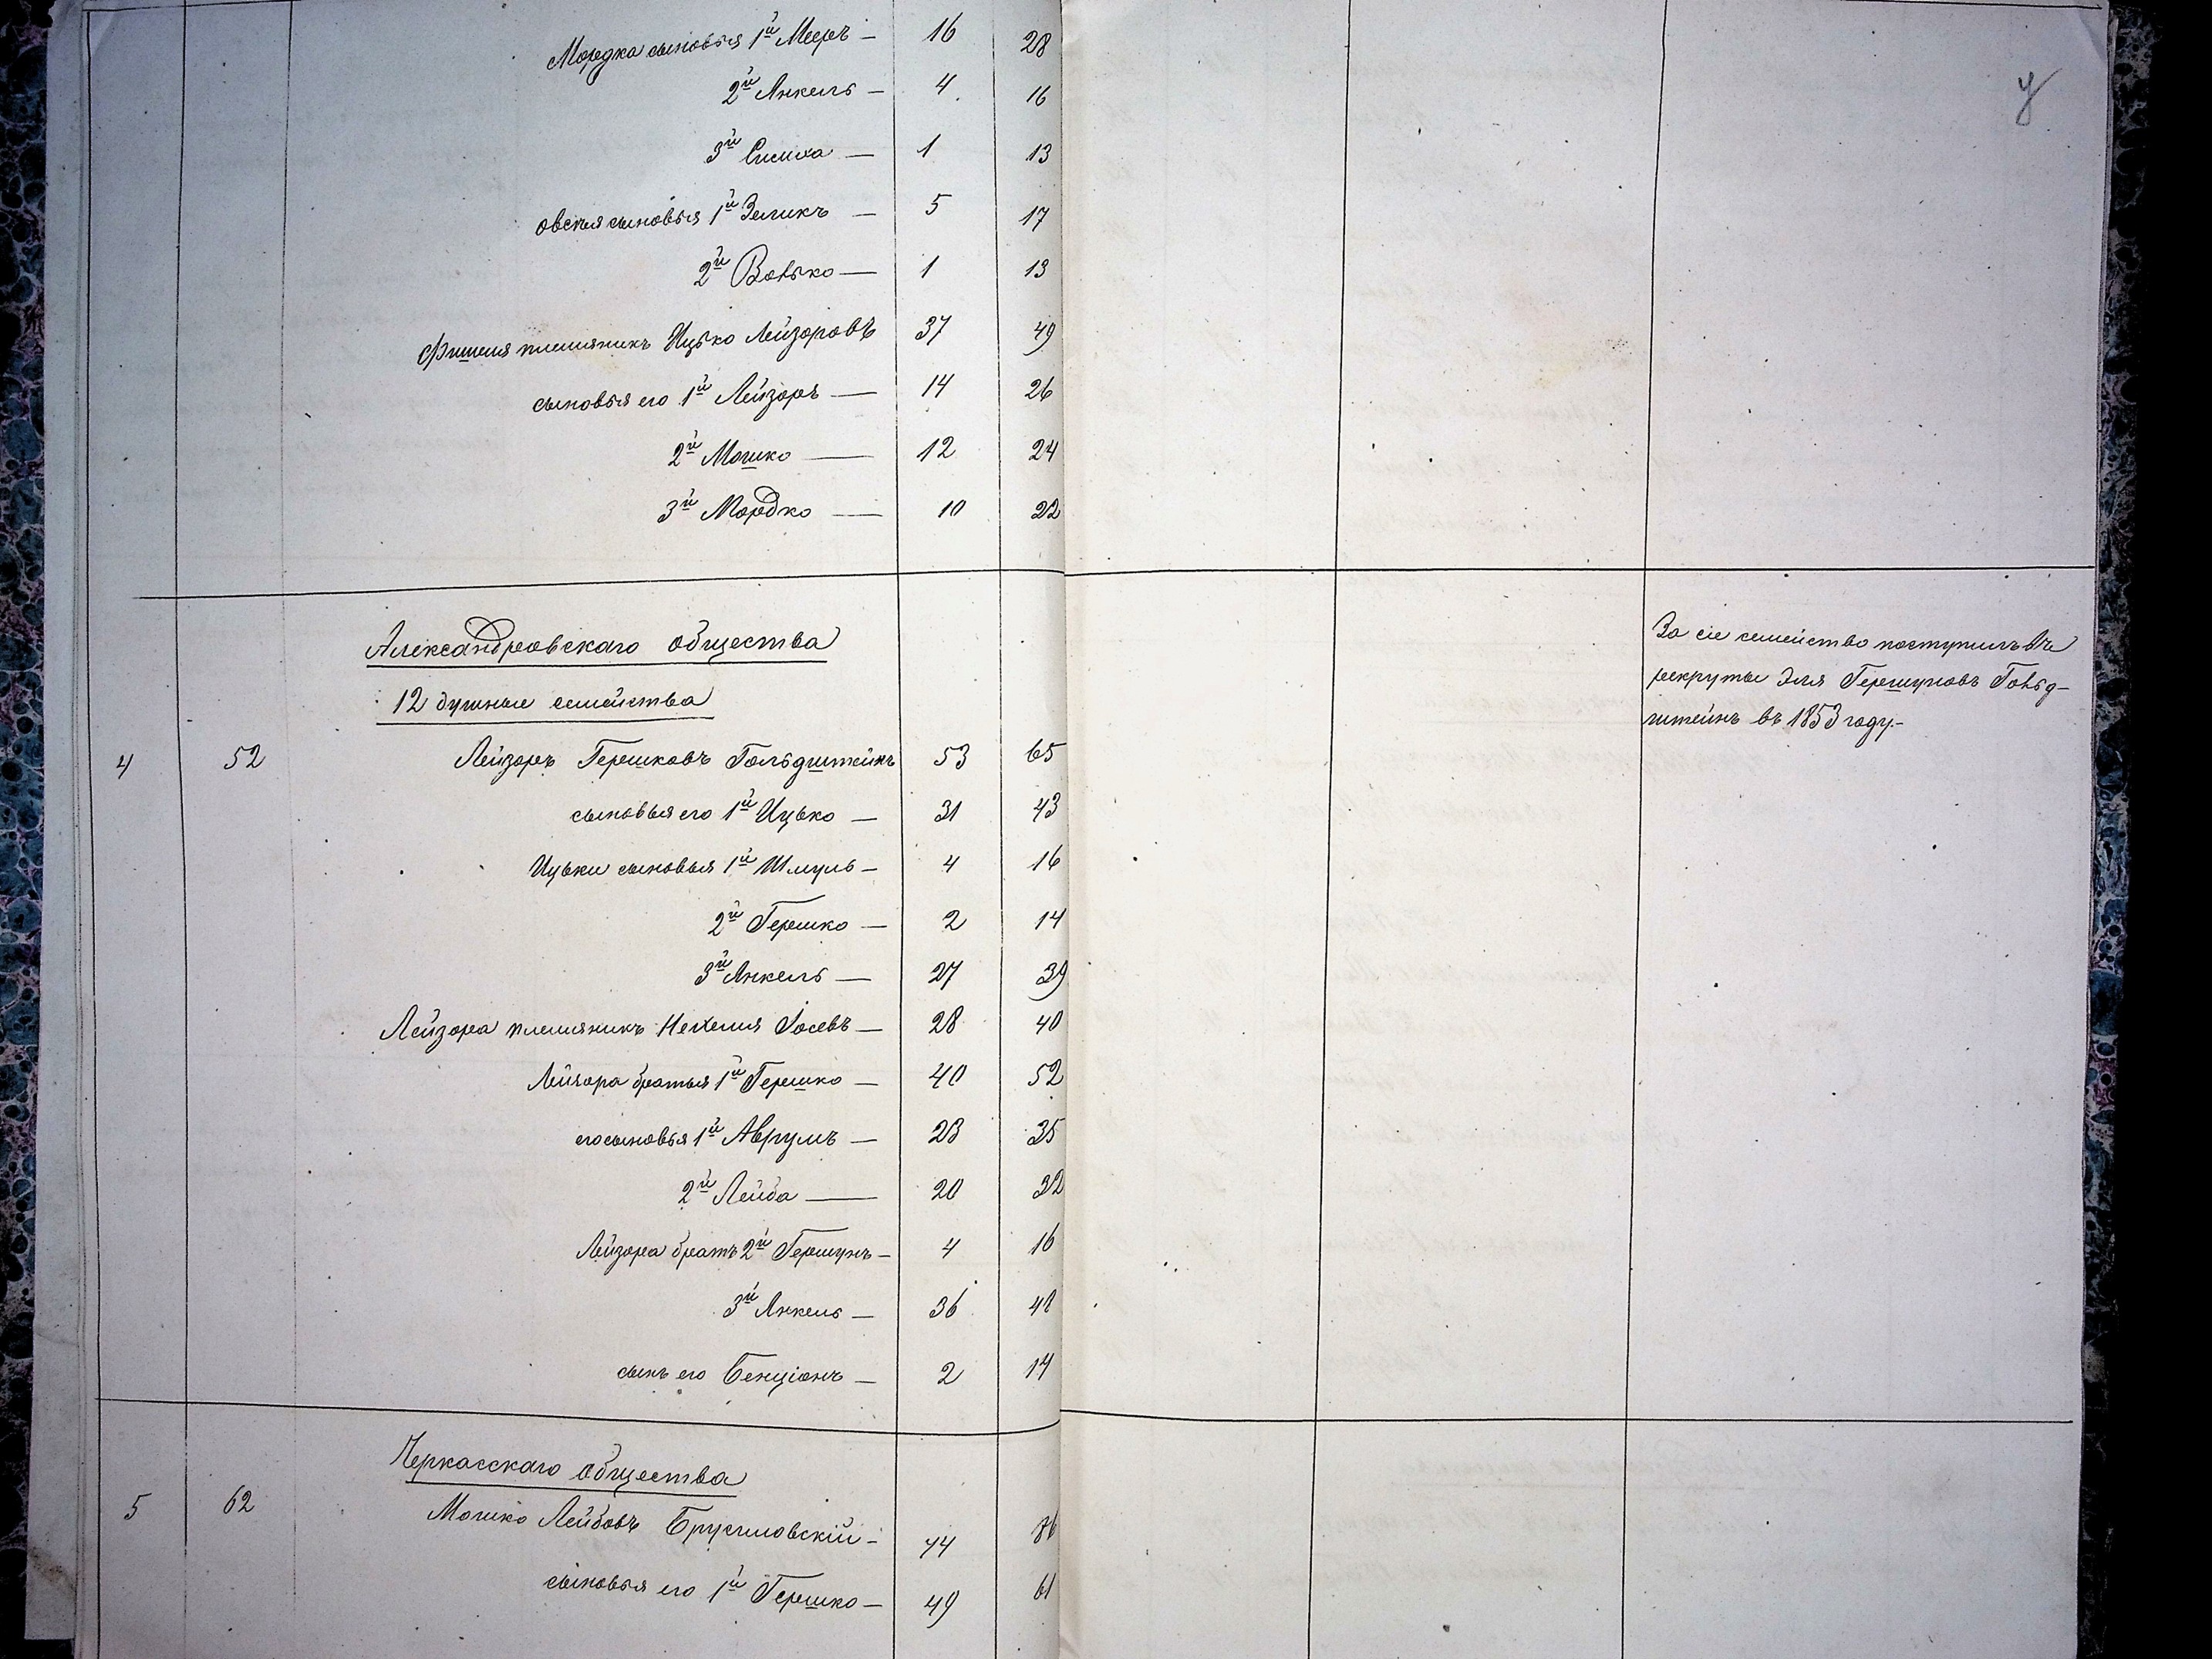 Мордка сыновья 1й Мееръ — 16 28
2й Янкель — 4 16
3й Симха — 1 13
овсѣя сыновья 1й Зеликъ — 5 17
2й Волько — 1 13
Фишеля племяникъ Ицько Лейзоровъ 37 49
сыновья его 1й Лейзоръ — 14 26
2й Мошко — 12 24
3й Мордко — 10 22
Александровскаго общества
12 душные семейства
4 52 Лейзоръ Гершковъ Гольдштейнъ 53 65
сыновья его 1й Ицько — 31 43
Ицьки сыновья 1й Шмуль — 4 16
2й Гершко — 2 14
3й Янкель — 27 39
Лейзора племяникъ Нехемия Іосевъ — 28 40
Лейзора братья 1й Гершко — 40 52
его сыновья 1й Аврумъ — 23 35
2й Лейба — 20 32
Лейзора братъ 2й Гершунъ — 4 16
3й Янкель — 36 48
сынъ его Бенціонъ — 2 14
Черкасскаго общества
5 62 Мошко Лейбовъ Брусиловскій — 74 86
сыновья его 1й Гершко — 49 61
За сіе семейство поступилъ въ
рекруты Эля Гершуновъ Гольд-
штейнъ въ 1853 году.-